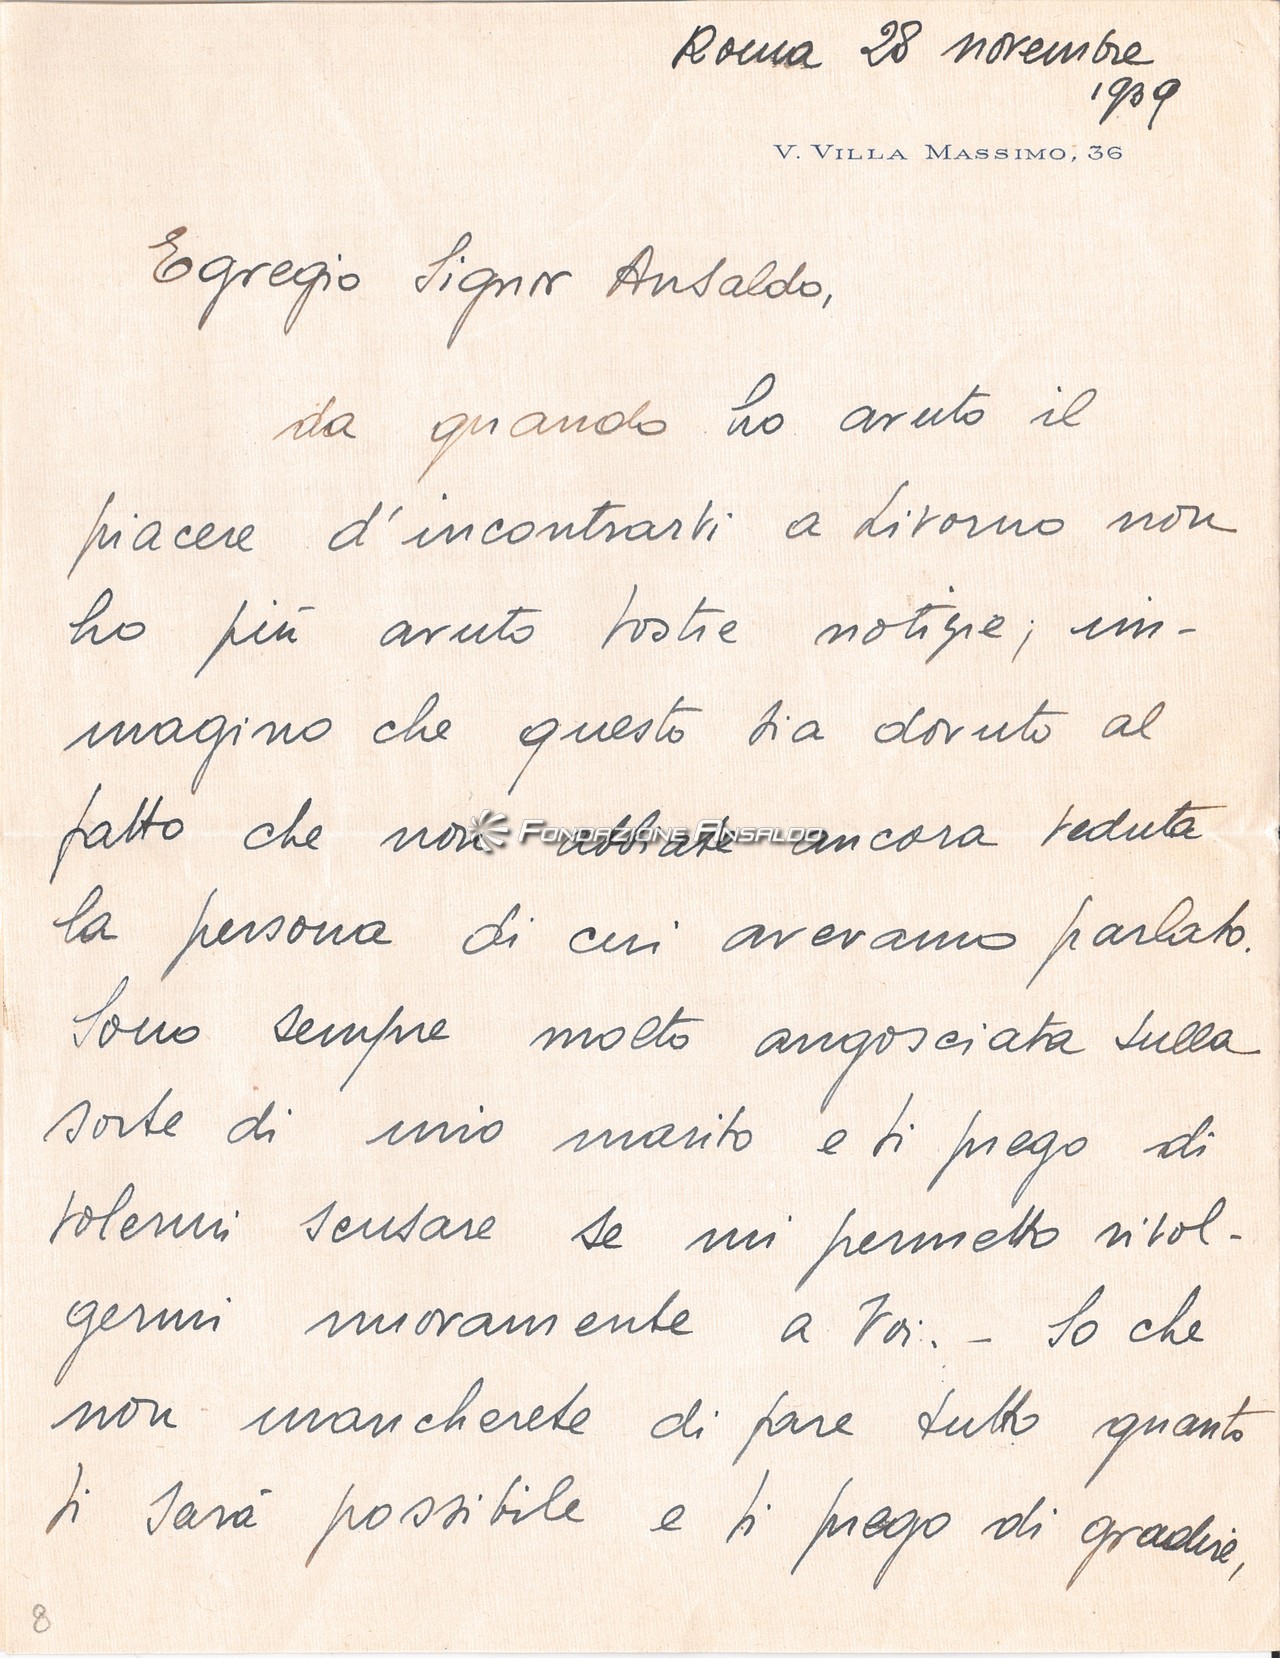 Roma 28 novembre
1939
V. VILLA MASSIMO, 36
Egregio Signor Ansaldo,
da quando ho avuto il
piacere d'incontrarvi a Livorno non
ho più avuto vostre notizie; im-
magino che questo sia dovuto al
fatto che non abbiate ancora veduta
FONDAZIONE ANSALDO
la persona di cui avevamo parlato.
Sono sempre molto angosciata sulla
sorte di mio marito e vi prego di
volermi scusare se mi permetto rivol-
germi nuovamente a Voi. - So che
non mancherete di fare tutto quanto
vi sarà possibile e vi prego di gradire,
8